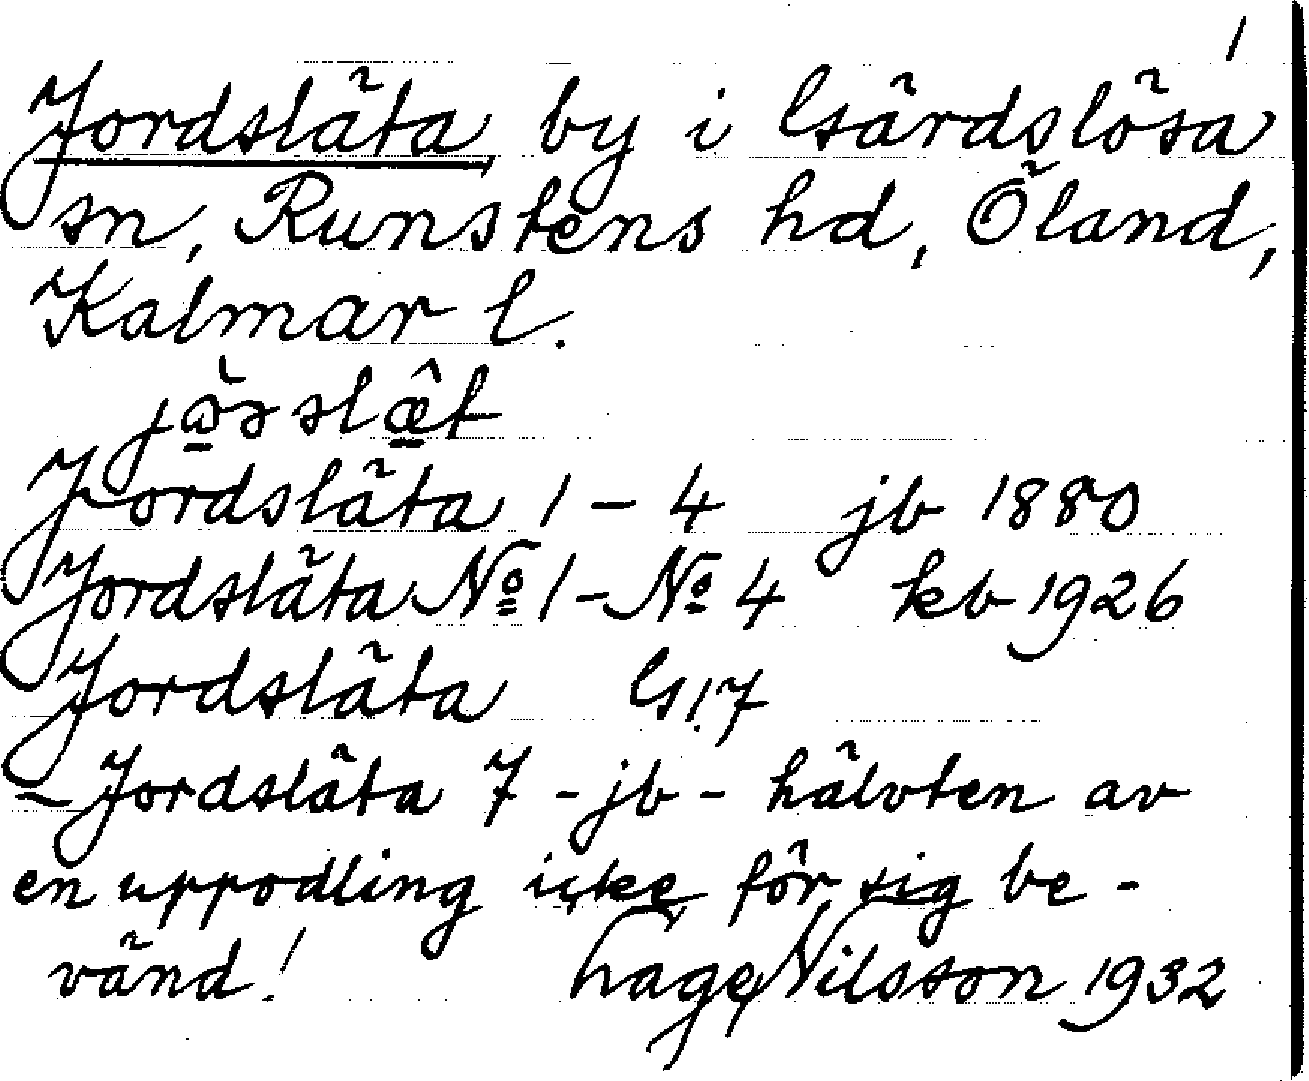 /
Jordsläta by i Gärdslösa
sn, Runstens hd, Öland,
Kalmar l.
Jordsläta 1 – 4 jb 1880
Jordsläta No 1 – No 4 kb 1926
Jordsläta G!7
– Jordsläta 7 - jb - hälvten av
en uppodling icke för sig be-
vänd! Hage Nilsson 1932